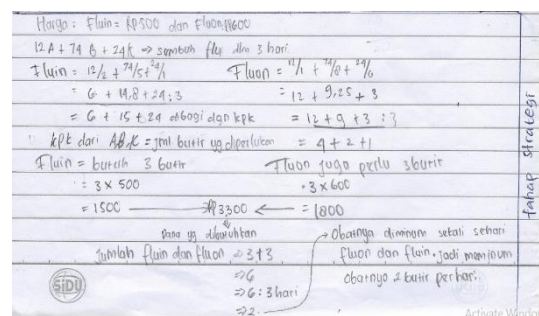 Harga : Fluin = Rp500 dan Fluon = Rp600
12 A + 74 B + 24 K => sembuh flu dlm 3 hari
Fluin = 12/2 + 74/5 + 24/1
= 6 + 14,8 + 24 : 3
= 6 + 15 + 24 dibagi dgn kpk
kpk dari ABK = jml butir yg diperlukan
Fluin = butuh 3 butir
= 3 x 500
= 1500
Fluon = 12/1 + 74/8 + 24/6
= 12 + 9,25 + 3
= 12 + 9 + 3 : 3
= 4 + 2 + 1
Fluon juga perlu 3 butir
= 3 x 600
Rp3300 <- = 1800
Dana yg dibutuhkan
Jumlah fluin dan fluon => 3+3
=> 6
=> 6 : 3 hari
=> 2
Obatnya diminum sekali sehari
fluon dan fluin. jadi meminum
obatnya 2 butir perhari.
tahap strategi
SiDU
Activate Windo